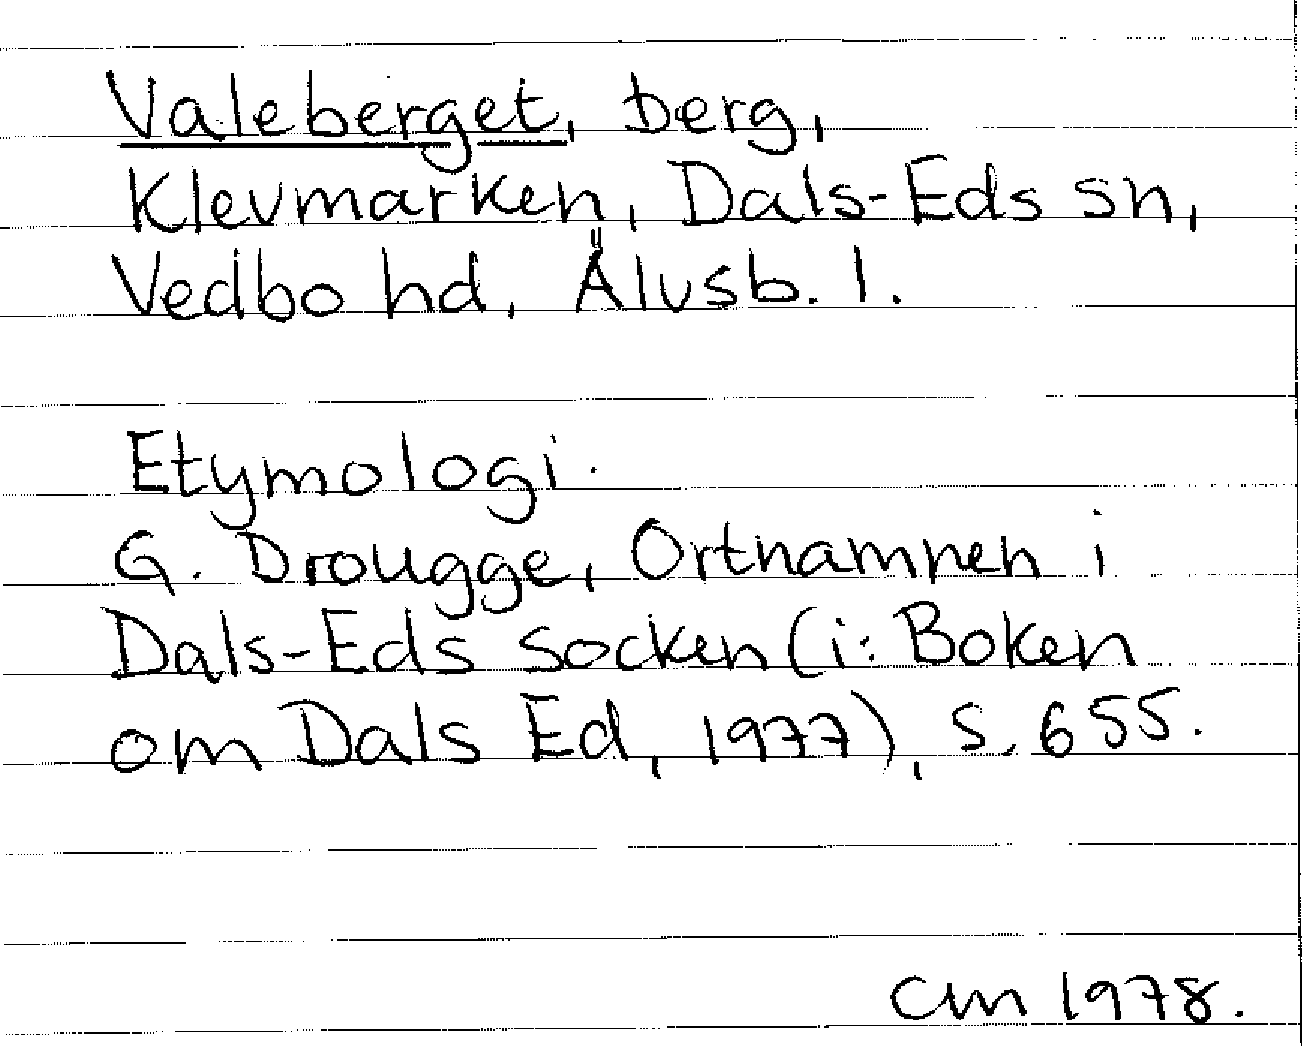 Valeberget, berg,
Klevmarken, Dals-Eds sn,
Vedbo hd, Älvsb. l.
Etymologi.
G. Drougge, Ortnamnen i
Dals-Eds socken (i: Boken
om Dals Ed, 1977), s. 655.
CM 1978.